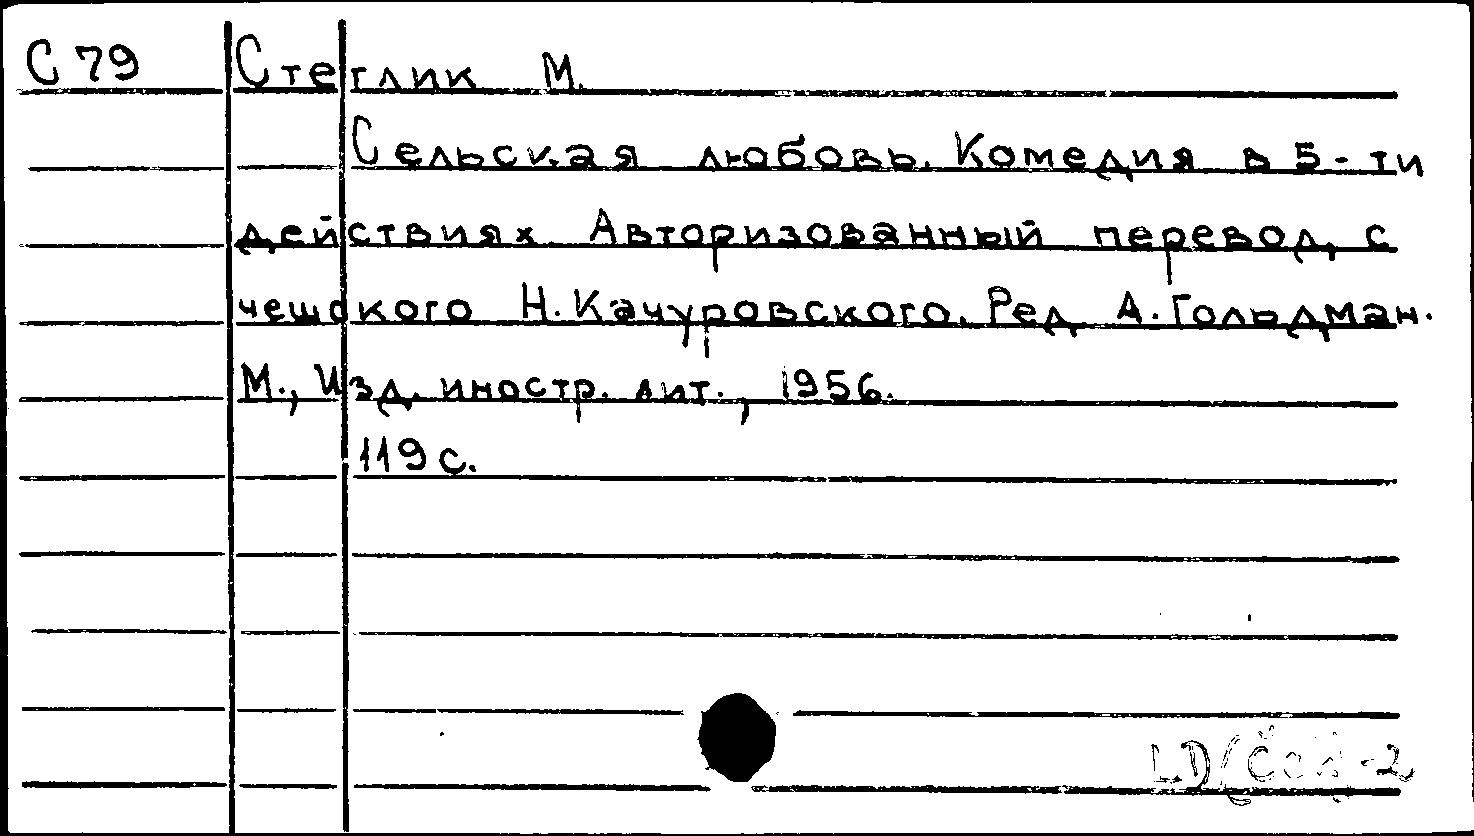 С 79 Стеглик М.
Сельская любовь. Комедия в 5-ти
действиях. Авторизованный перевод с
чешского Н. Качуровского. Ред. А. Гольдман.
М., Изд. иностр. лит., 1956.
119 с.